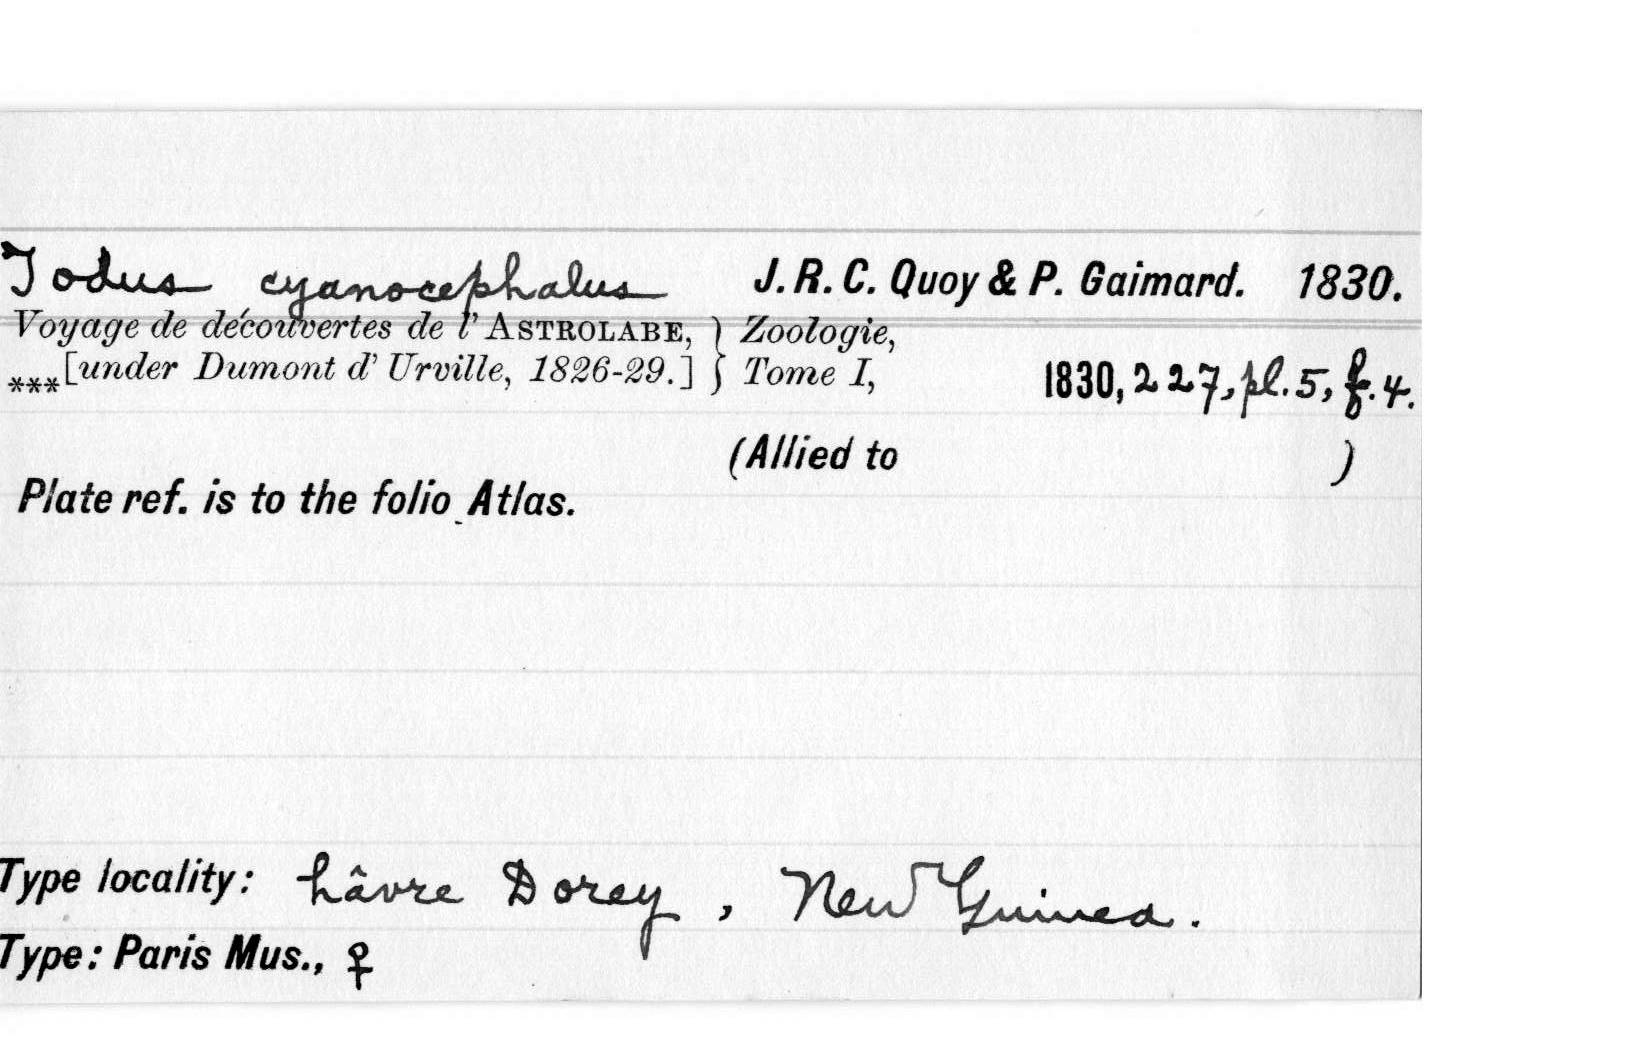 Todus cyanocephalus J. R. C. Quoy & P. Gaimard. 1830.
Voyage de découvertes de l' ASTROLABE, } Zoologie,
***[under Dumont d' Urville, 1826-29.] } Tome I, 1830, 227, pl. 5, f. 4.
(Allied to )
Plate ref. is to the folio Atlas.
Type locality: hâvre Dorey, New Guinea.
Type: Paris Mus., ♀